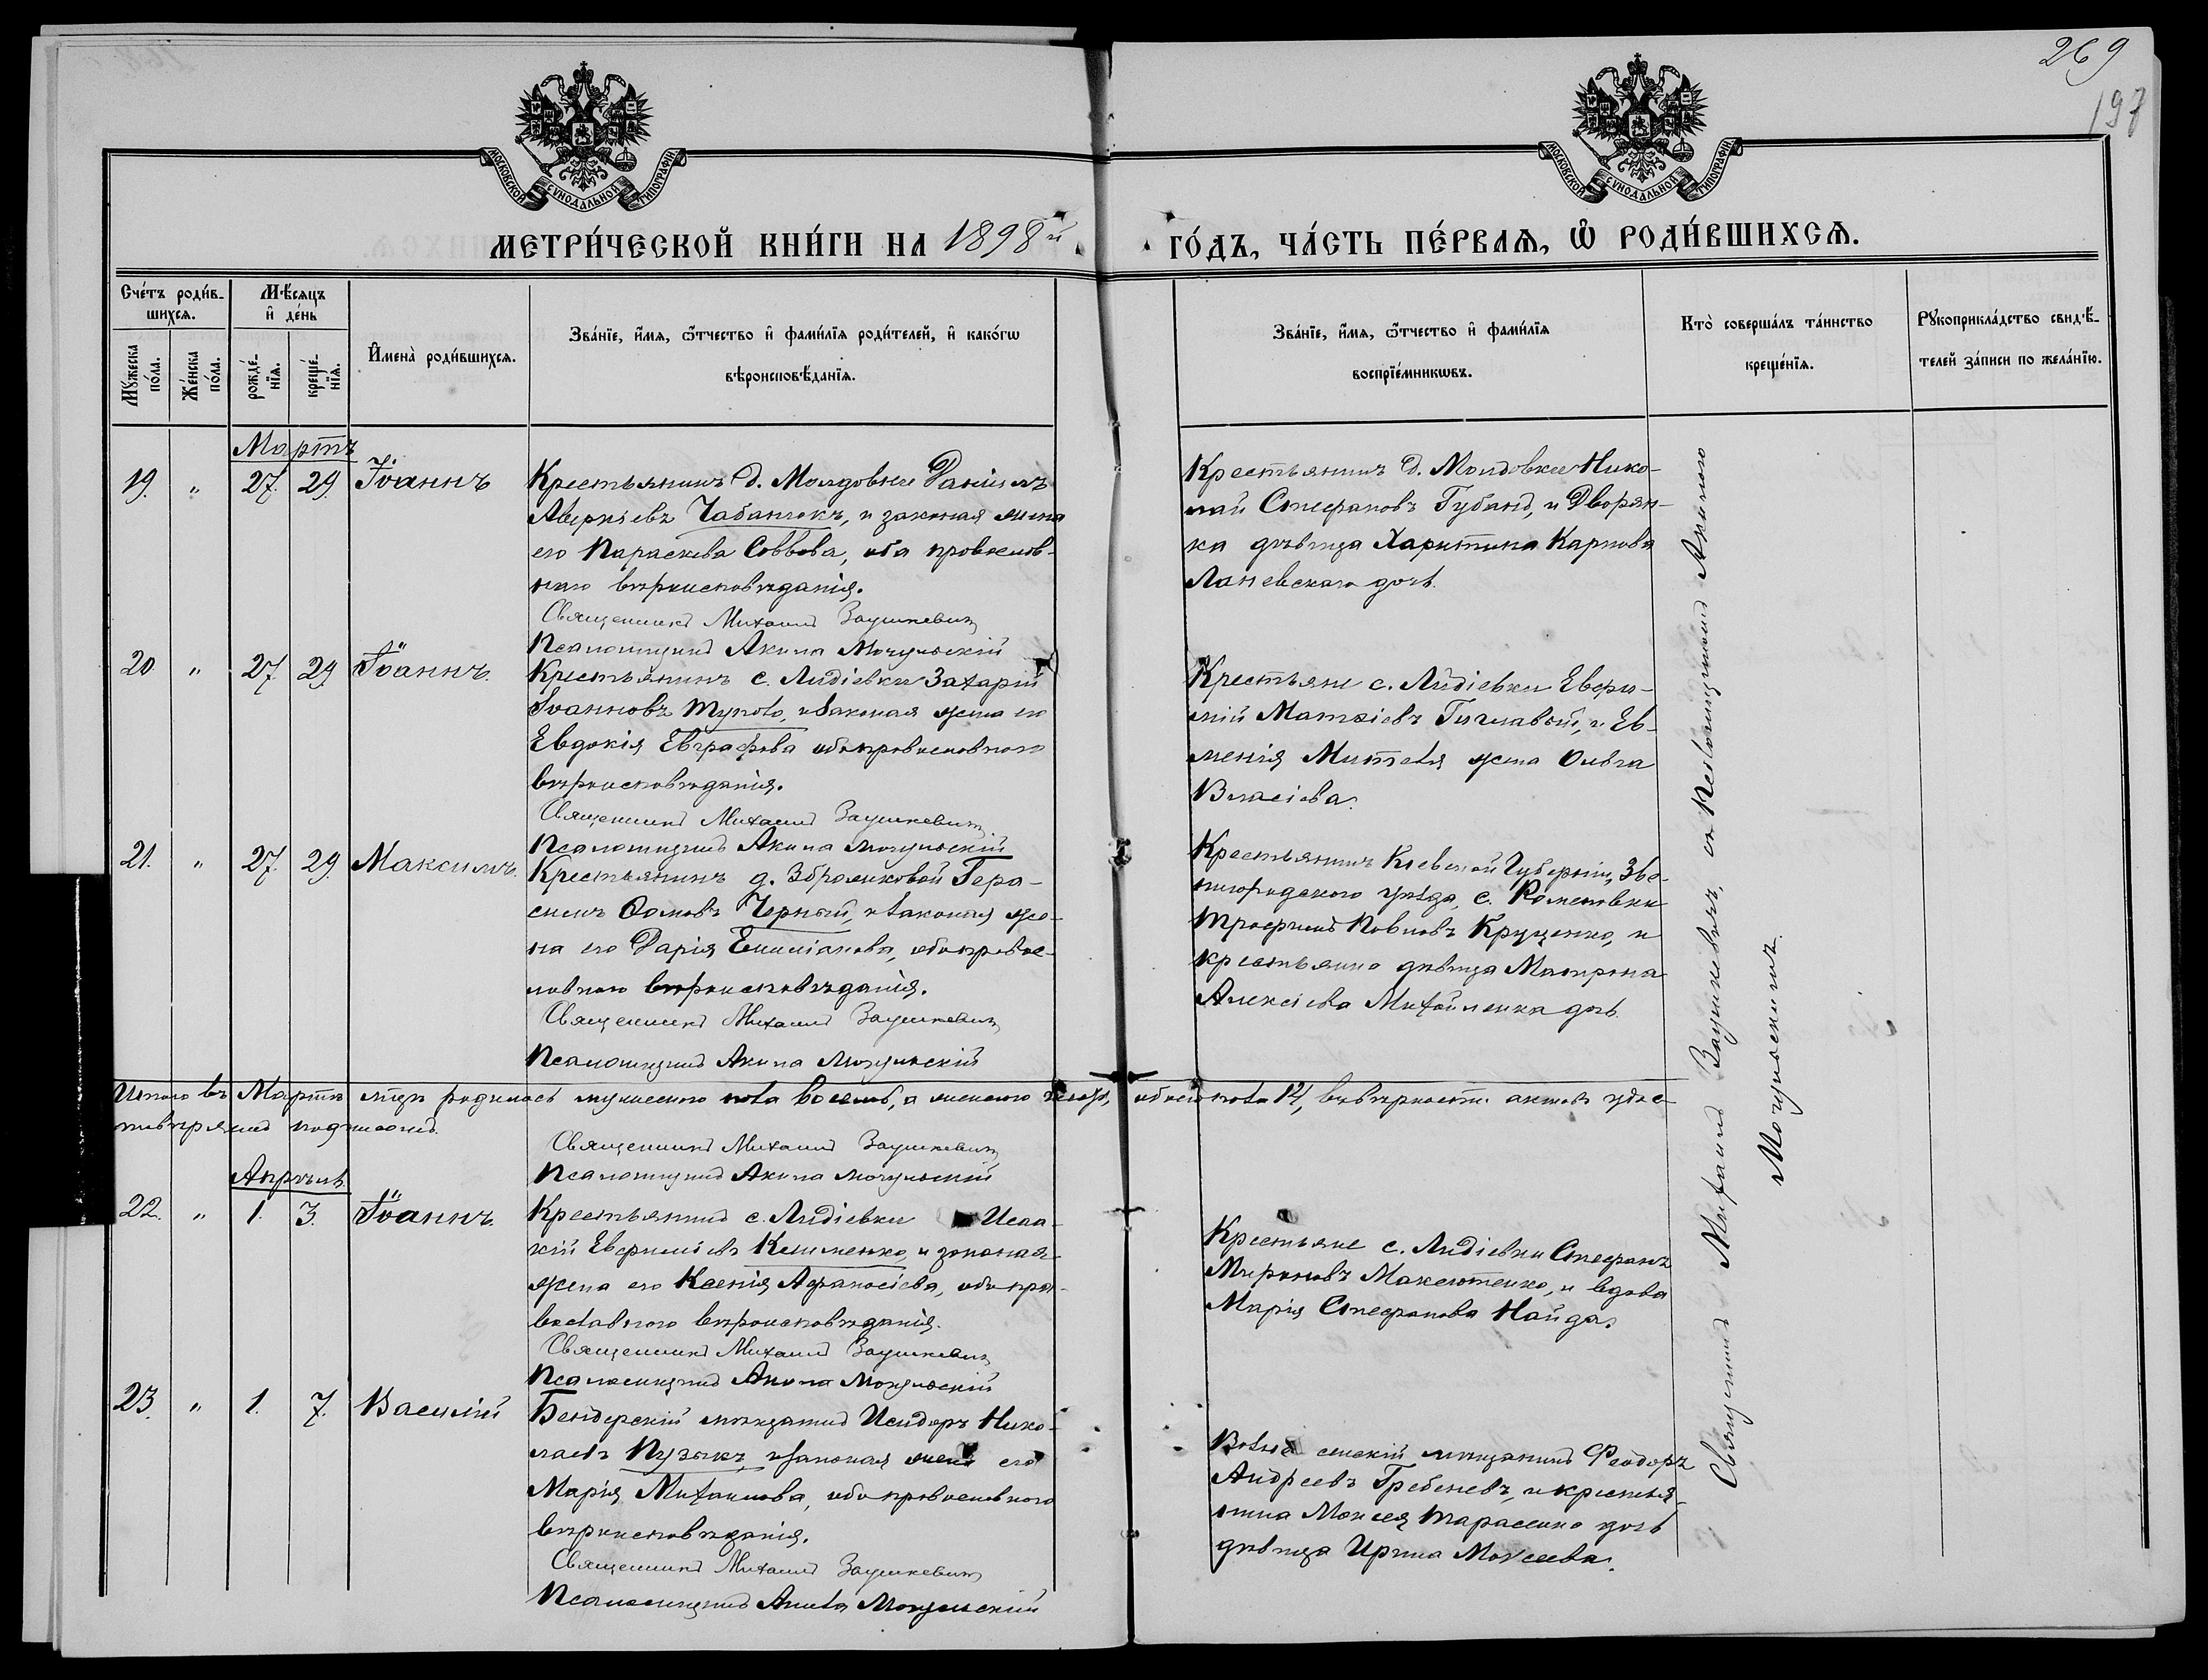 269
197
МОСКОВСКОЙ СѴНОДАЛЬНОЙ ТИПОГРАФІИ
МОСКОВСКОЙ СѴНОДАЛЬНОЙ ТИПОГРАФІИ
МЕТРИ́ЧЕСКОЙ КНИ́ГИ НА 1898й ГО́ДЪ, ЧА́СТЬ ПЕ́РВАѦ, Ѽ РОДИ́ВШИХСѦ.
Сче́тъ роди́в-
шихсѧ.
Мꙋ́жеска по́ла.
Же́нска по́ла.
Мѣ́сѧцъ
и҆ де́нь
рожде́-
нїѧ.
креще́-
нїѧ.
И҆мена̀ роди́вшихсѧ.
Зва́нїе, и҆́мѧ, ѻ҆́тчество и҆ фами́лїѧ роди́телей, и҆ како́гѡ
вѣроисповѣ́данїѧ.
Зва́нїе, и҆́мѧ, ѻ҆́тчество и҆ фами́лїѧ
воспрїе́мникѡвъ.
Кто̀ соверша́лъ та́инство
креще́нїѧ.
Рꙋкоприкла́дство свидѣ́-
телей за́писи по жела́нїю.
Мартъ
19. " 27. 29. Іоаннъ
Крестьянинъ д. Молдовки Даніилъ
Аверкіевъ Чабанюкъ, и законая жена
его Параскева Саввова, оба православ-
наго вѣроисповѣданія.
Священникъ Михаилъ Заушкевичъ
Псаломщикъ Акила Мочульскій
Крестьянинъ д. Молдовки Нико-
лай Стефановъ Губанд, и Дворян-
ка дѣвица Харитина Карпова
Ланевскаго дочь.
20 " 27. 29. Іоаннъ.
Крестьянинъ с. Лидіевки Захарій
Іоанновъ Туполо, и законая жена его
Евдокія Евграфова оба православнаго
вѣроисповѣданія.
Священникъ Михаилъ Заушкевичъ
Псаломщикъ Акила Мочульскій
Крестьяне с. Лидіевки Евфи-
мій Матѳіевъ Гиславой, и Ев-
менія жена Ольга
Власіева.
21. " 27. 29. Максимъ.
Крестьянинъ д. Збраликовой Гера-
симъ Ѳомовъ Черный, и законая же-
на его Дарія Емиліанова, оба правос-
лавнаго вѣроисповѣданія.
Священникъ Михаилъ Заушкевичъ
Псаломщикъ Акила Мочульскій
Крестьянинъ Кіевской Губерніи, Зве-
нигородскаго уѣзда, с. Рамановки
Трофимъ Павловъ Круценко, и
крестьянка дѣвица Матрона
Алексіева Михайленка дочь.
Итого въ Мартѣ мцѣ родилось мужескаго пола восемь, а женскаго обоего пола 14, въ вѣрности актовъ удос-
товѣряемъ подписомъ.
Священникъ Михаилъ Заушкевичъ
Псаломщикъ Акила Мочульскій
Апрѣль
22. " 1. 3. Іоаннъ
Крестьянинъ с. Лидіевки Исаа-
кій Евфиміевъ Клименко, и законая
жена его Ксенія Афанасіева, оба пра-
вославнаго вѣроисповѣданія.
Священникъ Михаилъ Заушкевичъ
Псаломщикъ Акила Мочульскій
Крестьяне с. Лидіевки Стефанъ
Мироновъ Максютенко, и вдова
Марія Стефанова Найда.
23. " 1. 7. Василій
Бендерскій мѣщанинъ Исидоръ Нико-
лаевъ Пузыкъ, и законая жена его
Марія Михаилова, оба православнаго
вѣроисповѣданія.
Священникъ Михаилъ Заушкевичъ
Псаломщикъ Акила Мочульскій
мѣщанинъ Ѳеодоръ
Андреевъ Гребеневъ, и крестья-
нина Моисея Тарасенко дочь
дѣвица Ирина Моисеева.
Священникъ Михаилъ Заушкевичъ, съ Псаломщикомъ Акилою
Мочульскимъ.